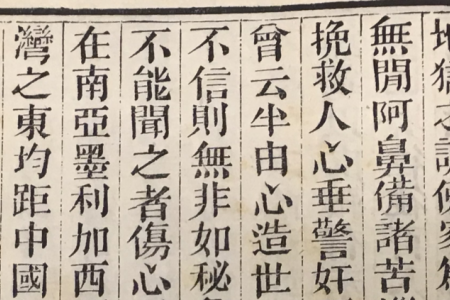 地獄之說
無閒阿鼻備諸苦
挽救人心垂警奸
曾云半由心造世
不信則無非如秘
不能聞之者傷心
在南亞墨利加西
灣之東均距中國